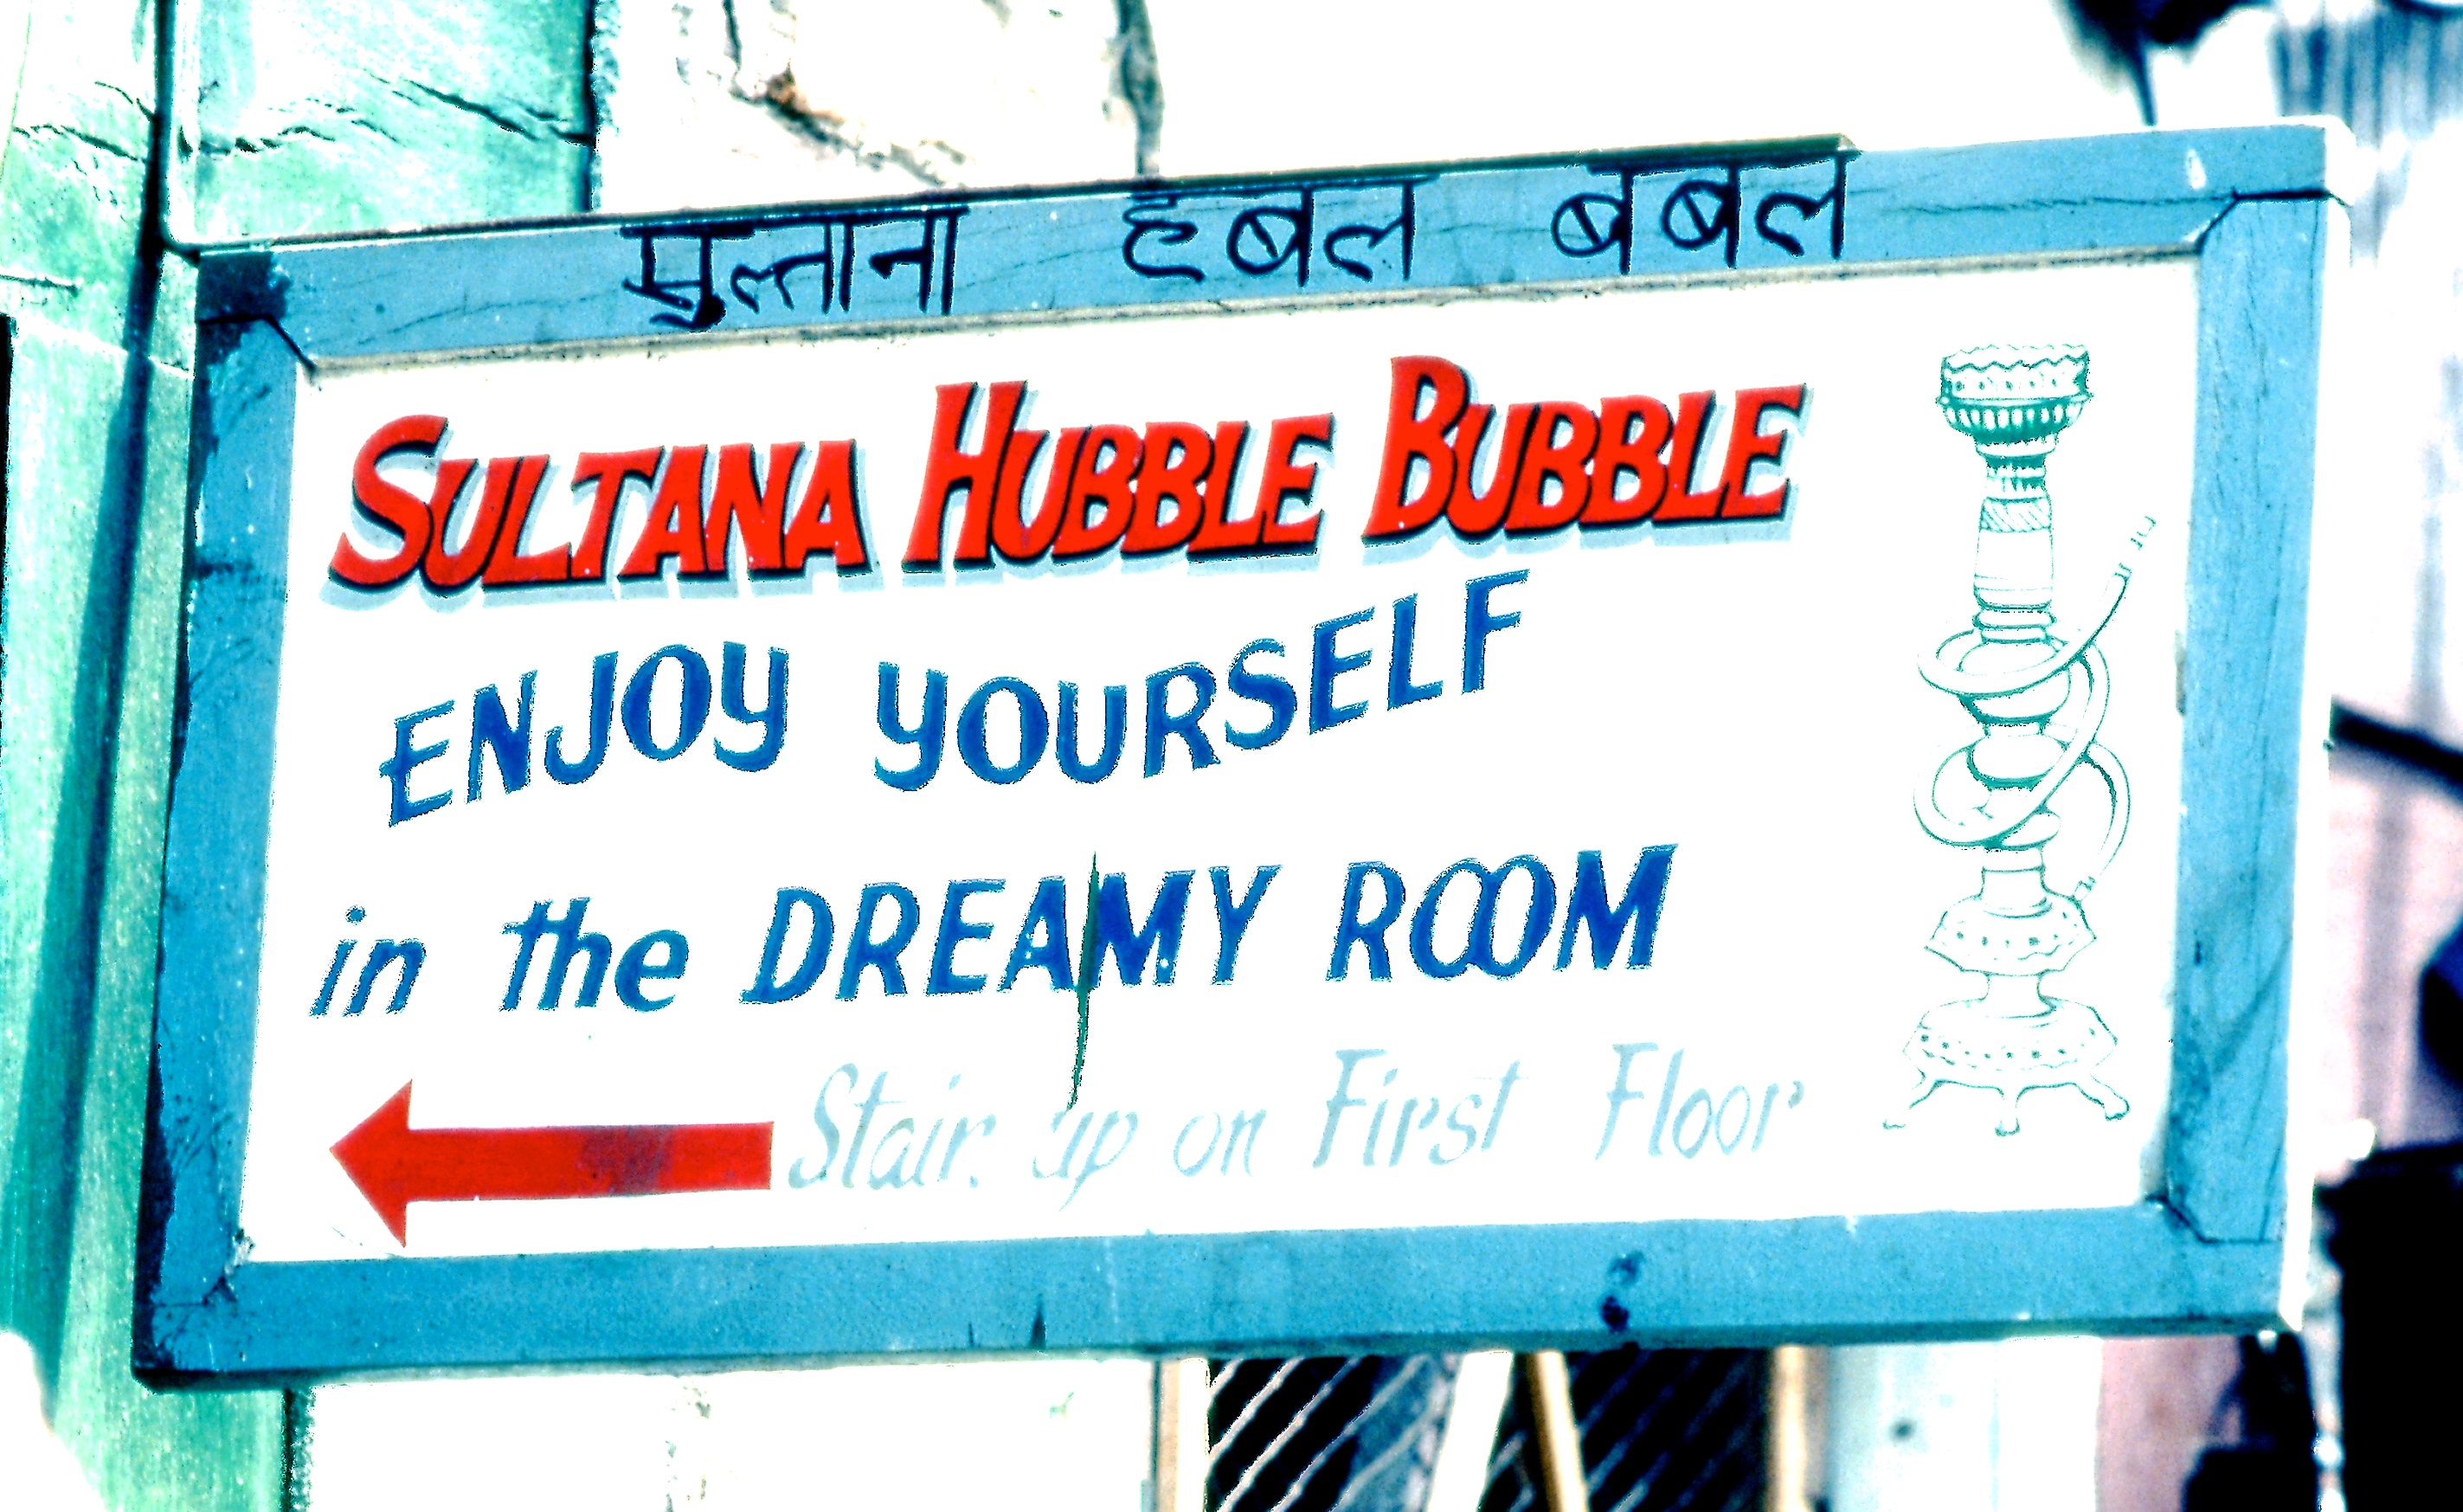 सुल्ताना हबल बबल
SULTANA HUBBLE BUBBLE
ENJOY YOURSELF
in the DREAMY ROOM
Stair. up on First Floor